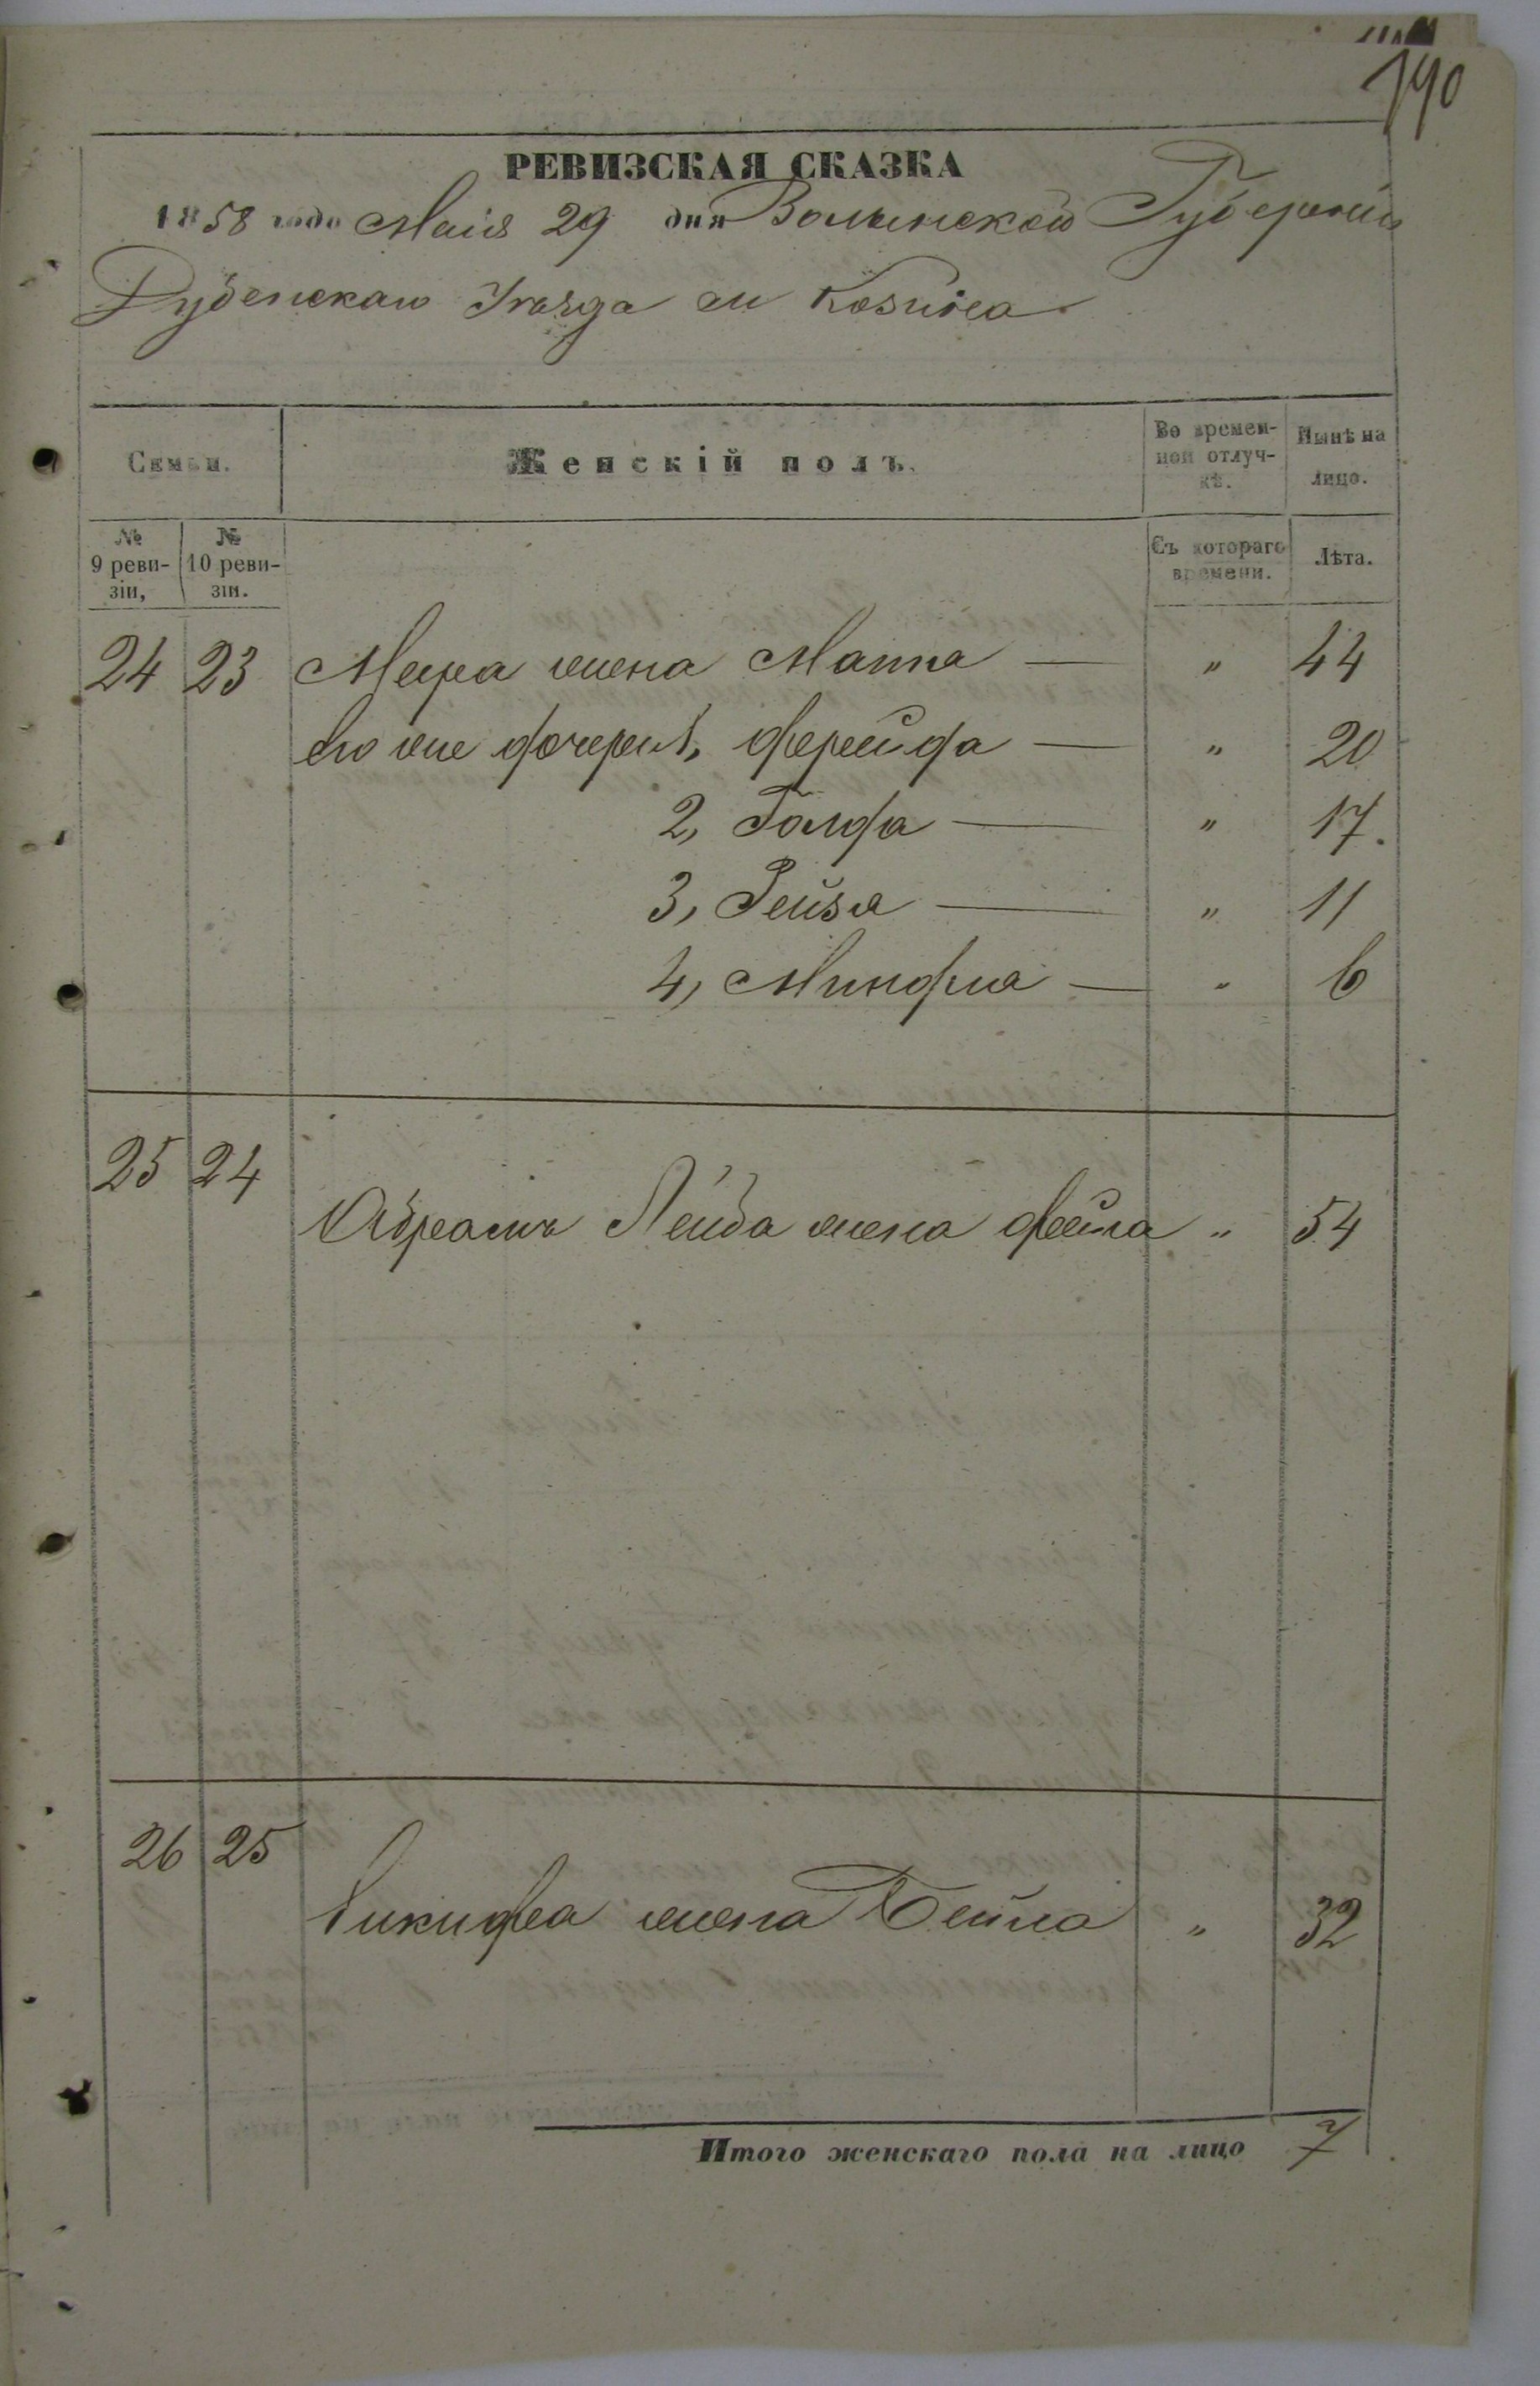 190
РЕВИЗСКАЯ СКАЗКА
1858 года Маія 29 дня Волынской Губерніи
Дубенскаго Уѣзда м Козина
Семьи. Женскій полъ. Во времен-ной отлуч-кѣ. Нынѣ на лицо.
№ 9 реви-зіи, № 10 реви-зіи. Съ котораго времени. Лѣта.
24 23 Меера жена Манна — " 44
его же дочери 1, Фрейда — " 20
2, Голда — " 17.
3, Рейзя — " 11
4, Миндля — " 6
25 24
Абрамъ Лейба жена Фейга " 54
26 25
жена Бейла " 32
Итого женскаго пола на лицо 7